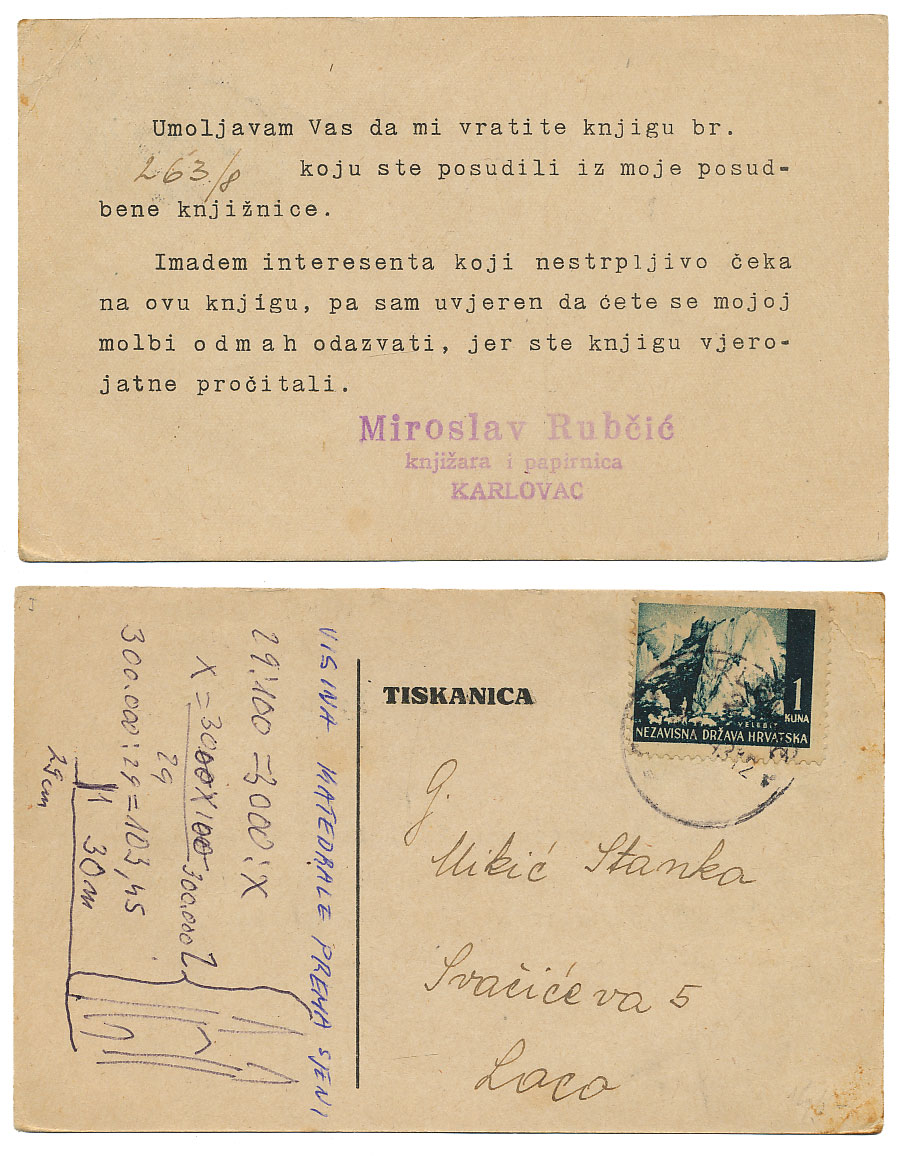 Umoljavam Vas da mi vratite knjigu br.
263/8 koju ste posudili iz moje posud-
bene knjižnice.
Imadem interesenta koji nestrpljivo čeka
na ovu knjigu, pa sam uvjeren da ćete se mojoj
molbi odmah odazvati, jer ste knjigu vjero-
jatne pročitali.
Miroslav Rubčić
knjižara i papirnica
KARLOVAC
TISKANICA
VELEBIT
1
KUNA
NEZAVISNA DRŽAVA HRVATSKA
G.
Mikić Stanka
Svačićeva 5
Loco
VISINA KATEDRALE PREMA SJENI
29:100=3000:X
X=3000X100 300.000
29
300.000:29=103,45
30m
29cm